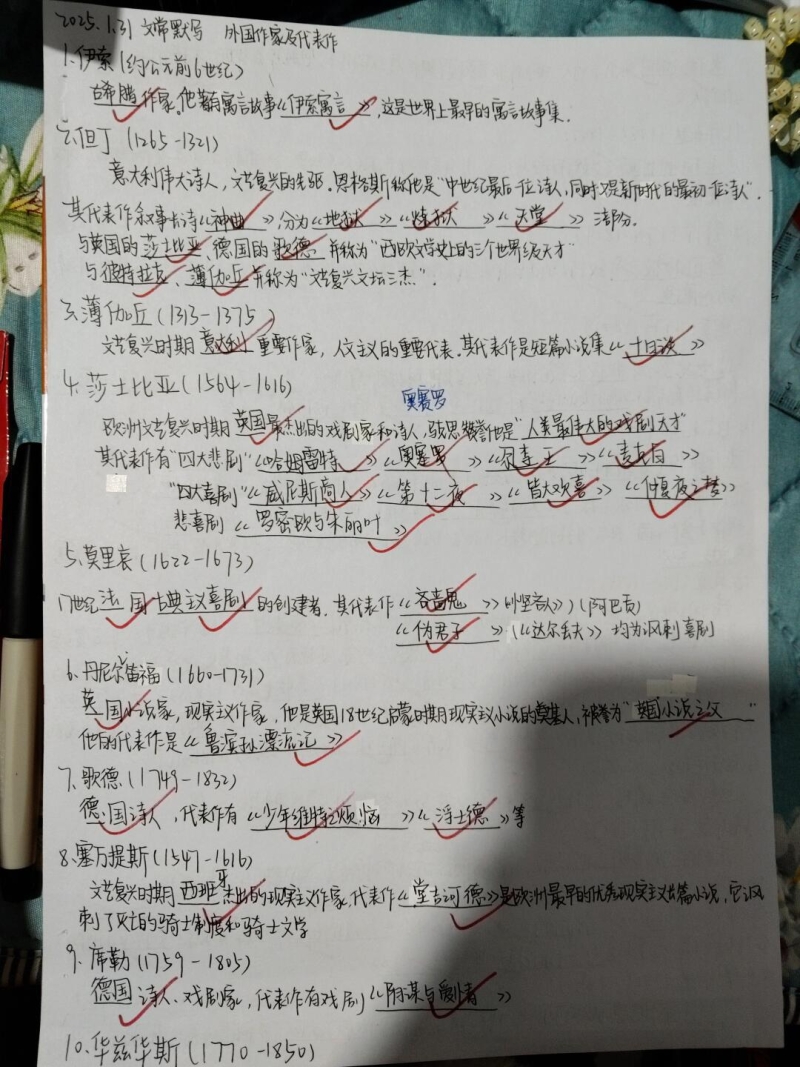 2025.1.31 文常默写 外国作家及代表作
1.伊索(约公元前6世纪)
古希腊作家。他著有寓言故事《伊索寓言》,这是世界上最早的寓言故事集.
2.但丁(1265-1321)
意大利伟大诗人,文艺复兴的先驱。恩格斯称他是"中世纪最后一位诗人,同时又是新时代的最初一位诗人".
其代表作叙事长诗《神曲》,分为《地狱》《炼狱》《天堂》三部份.
与英国的莎士比亚、德国的歌德并称为"西欧文学史上的三个世界级天才"
与彼特拉克、薄伽丘并称为"文艺复兴文坛三杰".
3.薄伽丘(1313-1375)
文艺复兴时期意大利重要作家,人文主义的重要代表.其代表作是短篇小说集《十日谈》
4.莎士比亚(1564-1616)
奥赛罗
欧洲文艺复兴时期英国最杰出的戏剧家和诗人,马克思赞誉他是"人类最伟大的戏剧天才"
其代表作有"四大悲剧"《哈姆雷特》《奥塞罗》《李尔王》《麦克白》
"四大喜剧"《威尼斯商人》《第十二夜》《皆大欢喜》《仲夏夜之梦》
悲喜剧《罗密欧与朱丽叶》
5.莫里哀(1622-1673)
17世纪法国古典主义喜剧的创建者.其代表作《吝啬鬼》(《悭吝人》)(阿巴贡)
《伪君子》(《达尔丢夫》均为讽刺喜剧
6.丹尼尔·笛福(1660-1731)
英国小说家,现实主义作家,他是英国18世纪启蒙时期现实主义小说的奠基人,被誉为"英国小说之父"
他的代表作是《鲁滨孙漂流记》
7.歌德(1749-1832)
德国诗人,代表作有《少年维特之烦恼》《浮士德》等
8.塞万提斯(1547-1616)
文艺复兴时期西班牙杰出的现实主义作家,代表作《堂吉诃德》是欧洲最早的优秀现实主义长篇小说,它讽
刺了灭亡的骑士制度和骑士文学
9.席勒(1759-1805)
德国诗人、戏剧家,代表作有戏剧《阴谋与爱情》
10.华兹华斯(1770-1850)